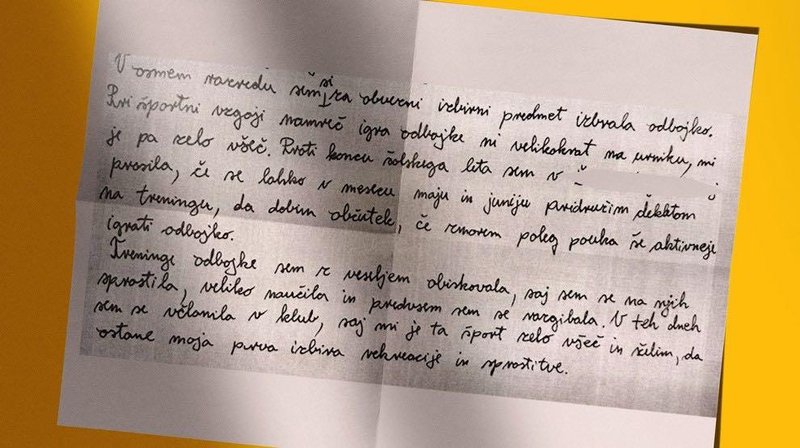 V osmem razredu sem si za obvezni izbirni predmet izbrala odbojko.
Pri športni vzgoji namreč igra odbojke ni velikokrat na urniku, mi
je pa zelo všeč. Proti koncu šolskega leta sem v
prosila, če se lahko v mesecu maju in juniju pridružim dekletom
na treningu, da dobim občutek, če zmorem poleg pouka še aktivneje
igrati odbojko.
Treninge odbojke sem z veseljem obiskovala, saj sem se na njih
sprostila, veliko naučila in predvsem sem se razgibala. V teh dneh
sem se včlanila v klub, saj mi je ta šport zelo všeč in želim, da
ostane moja prva izbira rekreacije in sprostitve.